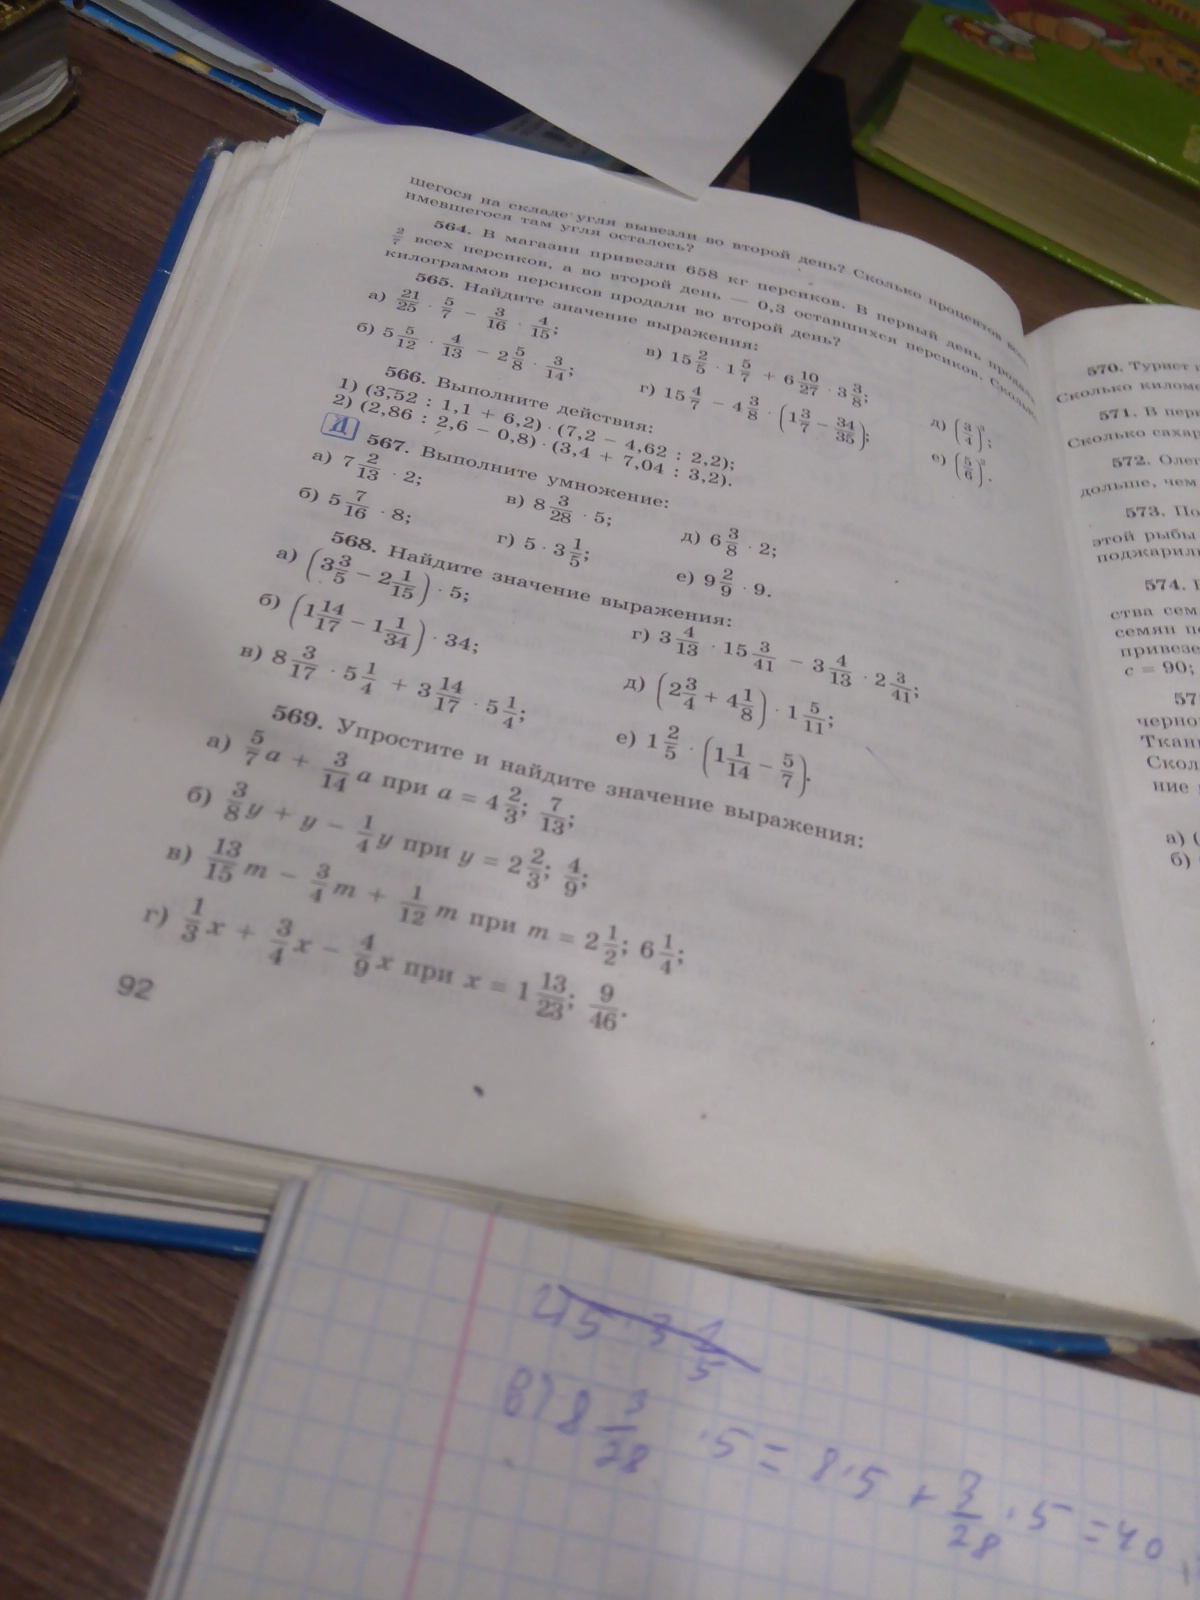 шегося на складе угля вывезли во второй день? Сколько процентов всего
имевшегося там угля осталось?
564. В магазин привезли 658 кг персиков. В первый день продали
2/7 всех персиков, а во второй день — 0,3 оставшихся персиков. Сколько
килограммов персиков продали во второй день?
565. Найдите значение выражения:
а) 21/25 · 5/7 − 3/16 · 4/15;
б) 5 5/12 · 4/13 − 2 5/8 · 3/14;
в) 15 2/5 · 1 5/7 + 6 10/27 · 3 3/8;
г) 15 4/7 − 4 3/8 · (1 3/7 − 34/35);
566. Выполните действия:
1) (3,52 : 1,1 + 6,2) · (7,2 − 4,62 : 2,2);
2) (2,86 : 2,6 − 0,8) · (3,4 + 7,04 : 3,2).
Д 567. Выполните умножение:
а) 7 2/13 · 2;
б) 5 7/16 · 8;
в) 8 3/28 · 5;
г) 5 · 3 1/5;
д) 6 3/8 · 2;
е) 9 2/9 · 9.
568. Найдите значение выражения:
а) (3 3/5 − 2 1/15) · 5;
б) (1 14/17 − 1 1/34) · 34;
в) 8 3/17 · 5 1/4 + 3 14/17 · 5 1/4;
г) 3 4/13 · 15 3/41 − 3 4/13 · 2 3/41;
д) (2 3/4 + 4 1/8) · 1 5/11;
е) 1 2/5 · (1 1/14 − 5/7).
569. Упростите и найдите значение выражения:
а) 5/7 a + 3/14 a при a = 4 2/3; 7/13;
б) 3/8 y + y − 1/4 y при y = 2 2/3; 4/9;
в) 13/15 m − 3/4 m + 1/12 m при m = 2 1/2; 6 1/4;
г) 1/3 x + 3/4 x − 4/9 x при x = 1 13/23; 9/46.
92
570. Турист
Сколько килом
571. В пер
Сколько сахар
572. Олег
дольше, чем
573. По
этой рыбы
поджарили
574.
ства сем
семян по
привезе
c = 90;
57
черно
Ткан
Скол
ние
а) (
б)
в) 8 3/28 · 5 = 8 · 5 + 3/28 · 5 = 40